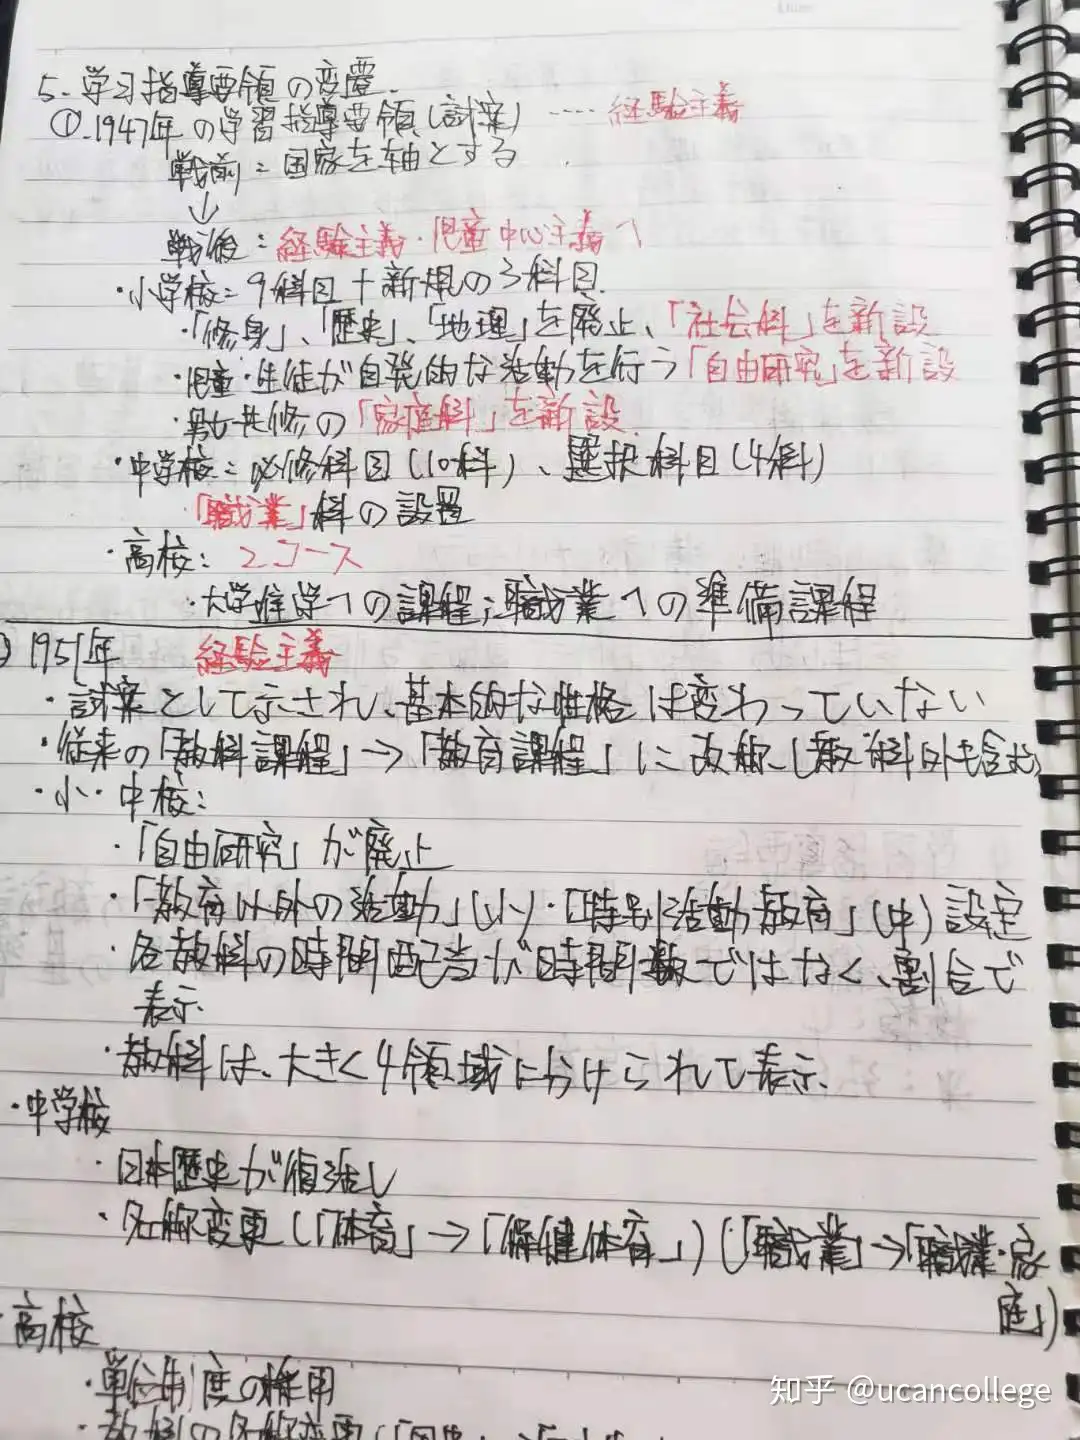 5. 学习指導要領の変遷.
①.1947年の学習指導要領(試案) ---- 経験主義
戦前:国家を軸とする
↓
戦後:経験主義・児童中心主義へ
・小学校:9科目+新規の3科目.
・「修身」、「歴史」、「地理」を廃止、「社会科」を新設
・児童・生徒が自発的な活動を行う「自由研究」を新設
・男女共修の「家庭科」を新設
・中学校:必修科目(10科)、選択科目(4科)
「職業」科の設置
・高校: 2コース
・大学進学への課程;職業への準備課程
1951年 経験主義
・試案として示され、基本的な性格は変わっていない
・従来の「教科課程」→「教育課程」に改称.(教科外も含む)
・小・中校:
・「自由研究」が廃止
・「教育以外の活動」(小)・「特別活動教育」(中)設定
・各教科の時間配当が時間数ではなく、割合で
表示.
・教科は、大きく4領域に分けられて表示.
・中学校
・日本歴史が復活し
・名称変更(「体育」→「保健体育」)(「職業」→「職業・家
庭」)
・高校
・単位制度の採用
知乎 @ucancollege